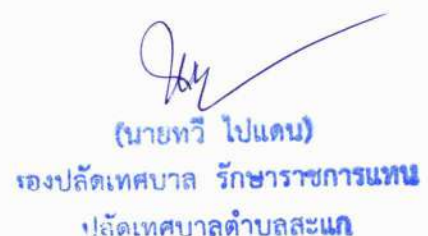 (นายทวี ไปแดน)
รองปลัดเทศบาล รักษาราชการแทน
ปลัดเทศบาลตำบลสะแก